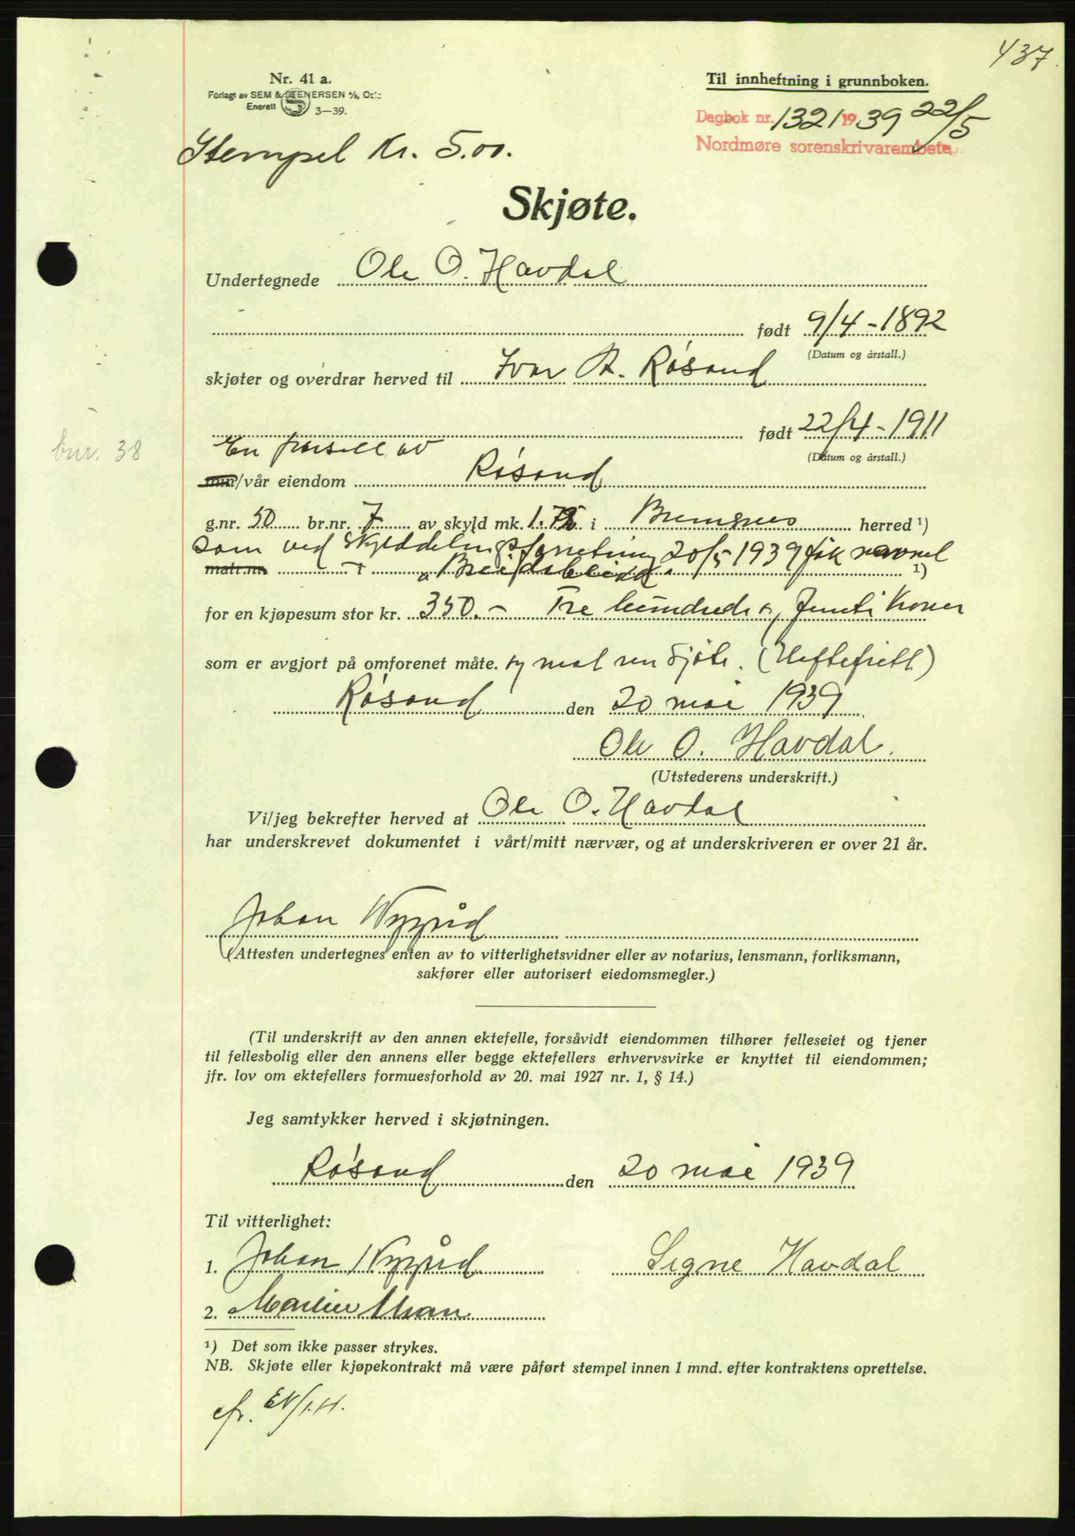 437.
Nr. 41 a.
Forlagt av SEM & STENERSEN A/S, Oslo
Enerett 3—39.
Til innheftning i grunnboken.
Dagbok nr. 1321 1939 22/5
Nordmøre sorenskrivarembete
Stempel Kr. 5.00.
Skjøte.
Undertegnede Ole O. Havdal
født 9/4 - 1892
(Datum og årstall.)
skjøter og overdrar herved til Ivar A. Røsand
født 22/4 - 1911
(Datum og årstall.)
bnr. 38
En parsell av
min/vår eiendom Røsand
g.nr. 50 br.nr. 7 av skyld mk. 1.75 i Bremsnes herred ¹)
som ved skylddelingsforretning 20/5 1939 fik navnet
matr.nr. ¹)
for en kjøpesum stor kr. 350.- Tre hundrede og femti kroner
som er avgjort på omforenet måte. (Heftefritt)
Røsand den 20 mai 1939
Ole O. Havdal.
(Utstederens underskrift.)
Vi/jeg bekrefter herved at Ole O. Havdal
har underskrevet dokumentet i vårt/mitt nærvær, og at underskriveren er over 21 år.
Johan
(Attesten undertegnes enten av to vitterlighetsvidner eller av notarius, lensmann, forliksmann,
sakfører eller autorisert eiedomsmegler.)
(Til underskrift av den annen ektefelle, forsåvidt eiendommen tilhører felleseiet og tjener
til fellesbolig eller den annens eller begge ektefellers erhvervsvirke er knyttet til eiendommen;
jfr. lov om ektefellers formuesforhold av 20. mai 1927 nr. 1, § 14.)
Jeg samtykker herved i skjøtningen.
Røsand den 20 mai 1939
Til vitterlighet:
1. Johan
Signe Havdal
2.
¹) Det som ikke passer strykes.
NB. Skjøte eller kjøpekontrakt må være påført stempel innen 1 mnd. efter kontraktens oprettelse.